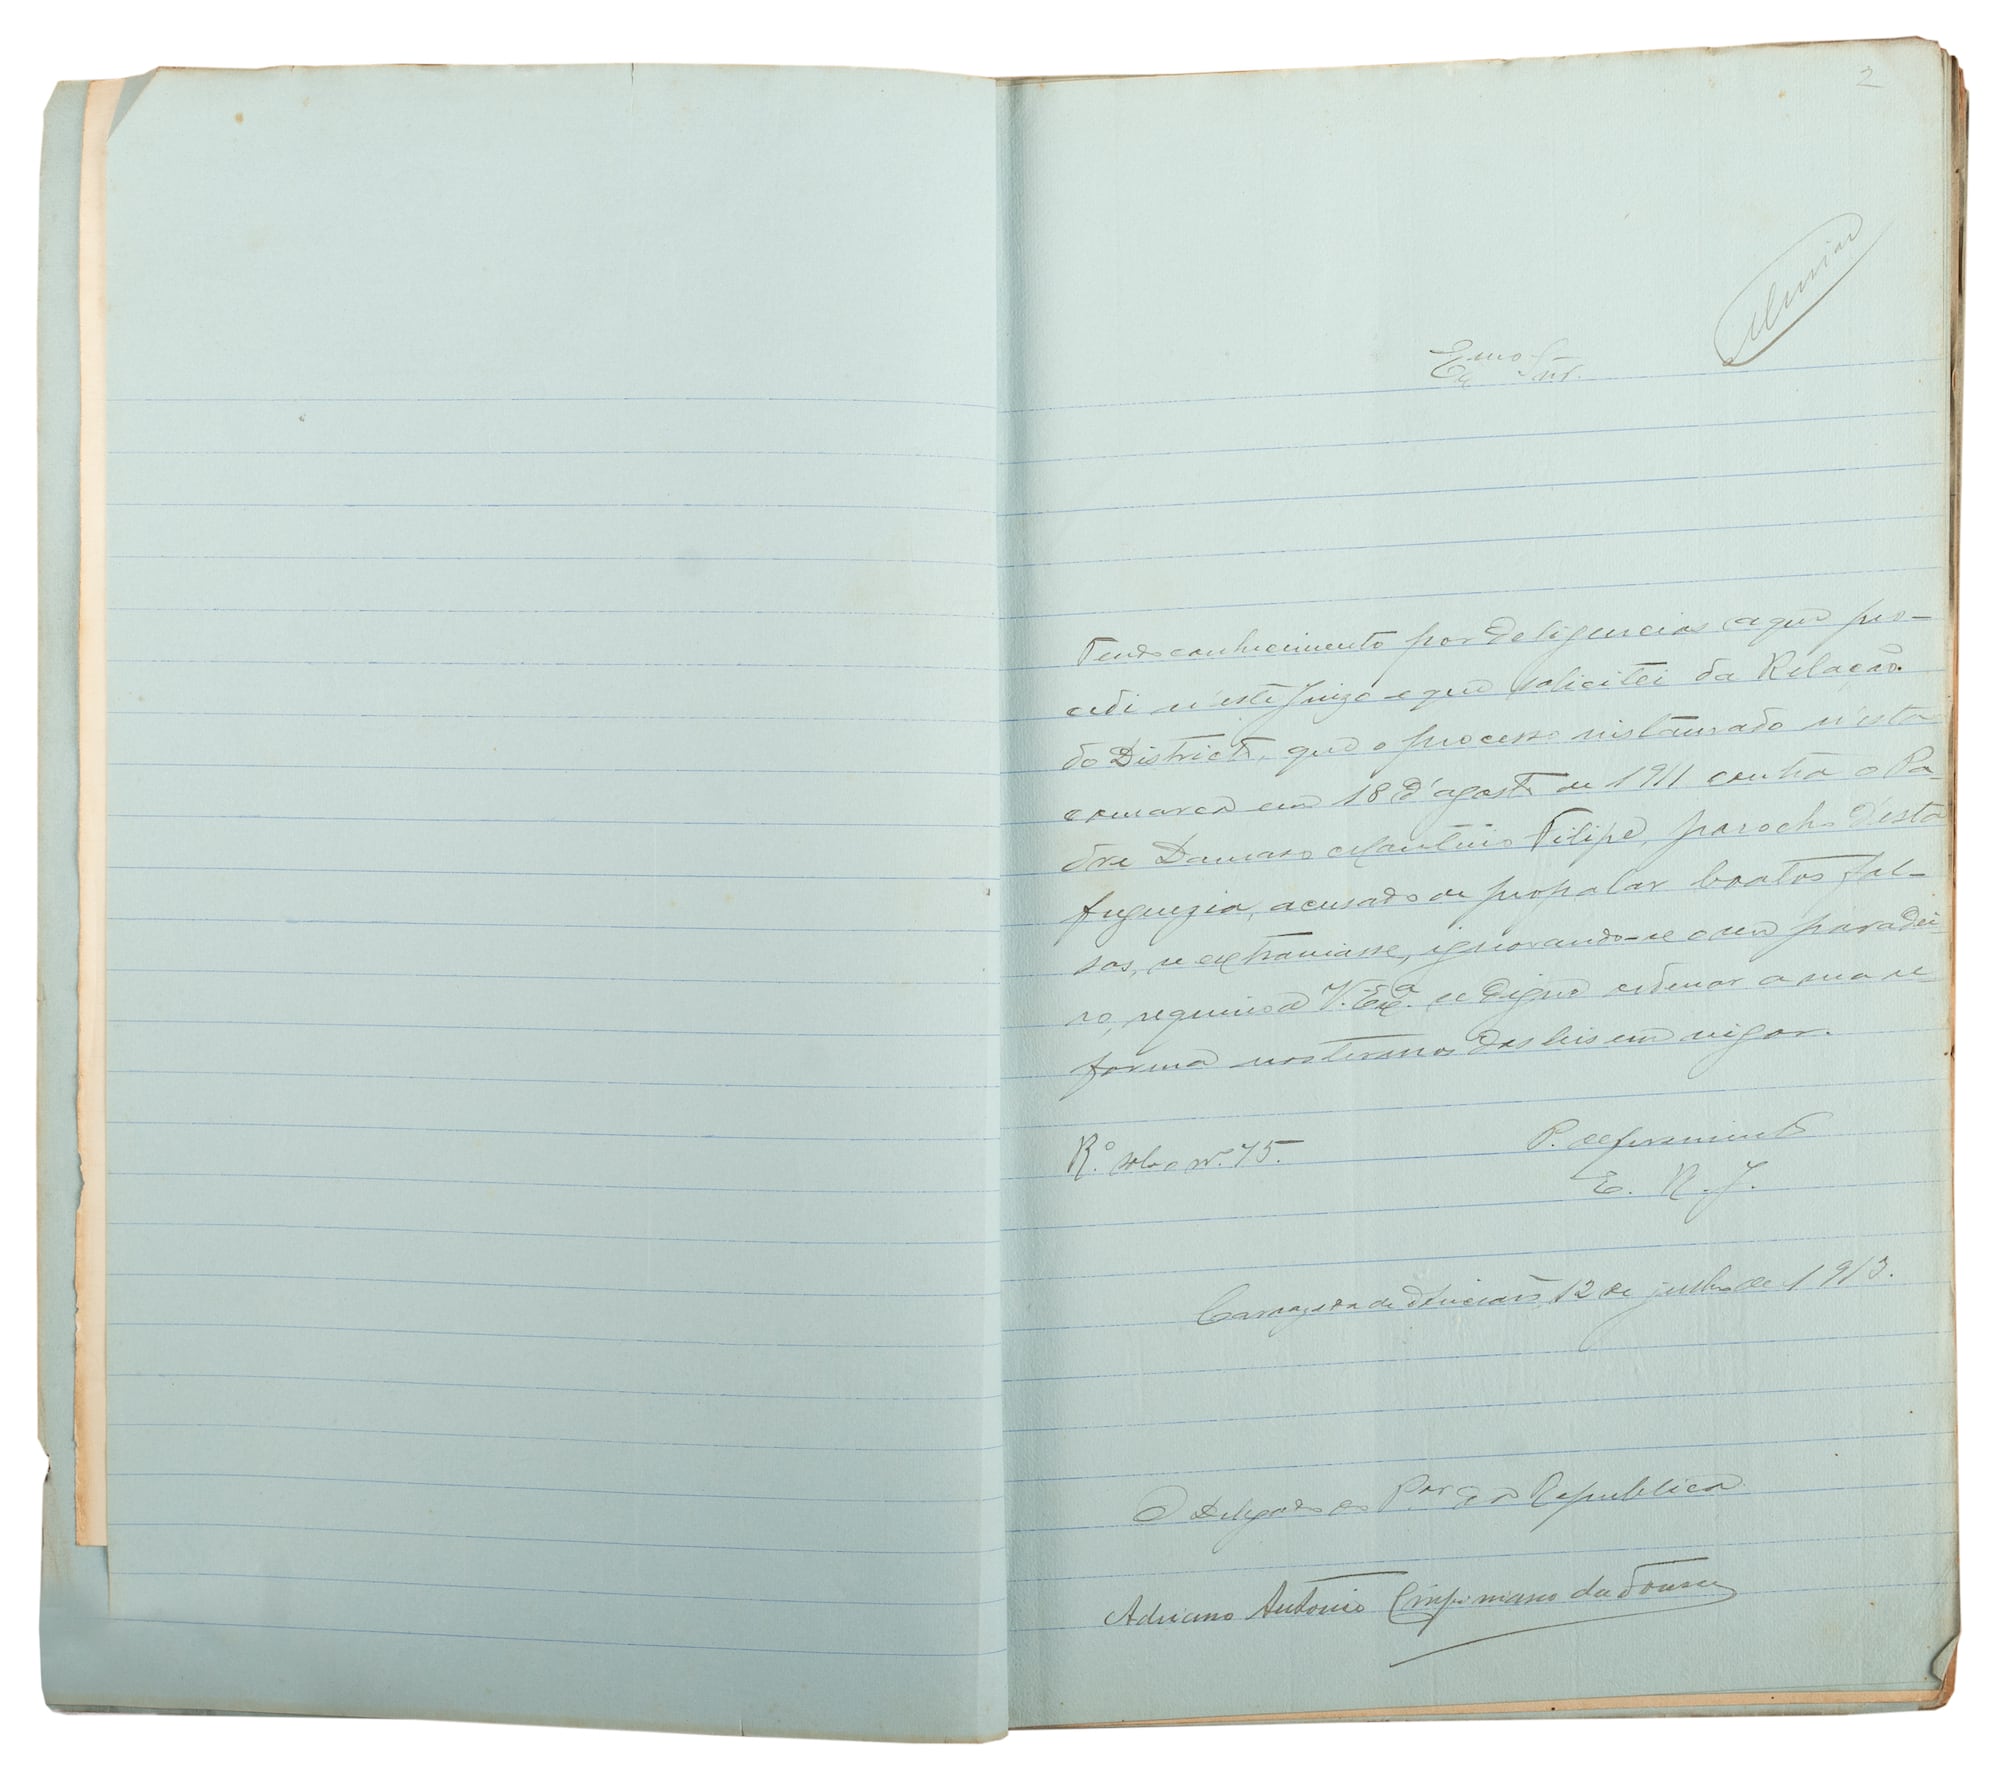 2
Exmo Snr.
Tendo conhecimento por deligencias a que pro-
cedi n'este Juizo e que solicitei da Relação
do Districto, que o processo instaurado n'esta
comarca em 18 d'agosto de 1911 contra o Pa-
dre Damaso Filipe, parocho d'esta
freguezia, acusado de propalar boatos fal-
sos, se extraviasse, ignorando-se o seu paradei-
ro, requeiro a V. Exª. se digne ordenar a sua re-
forma nos termos das leis em vigor.
R.º sob o nº. 75.
P. deferimento
E. R. J.
Carrazeda de Anciães, 12 de julho de 1913.
O Delegado do P.or da Republica
Adriano Antonio de Sousa